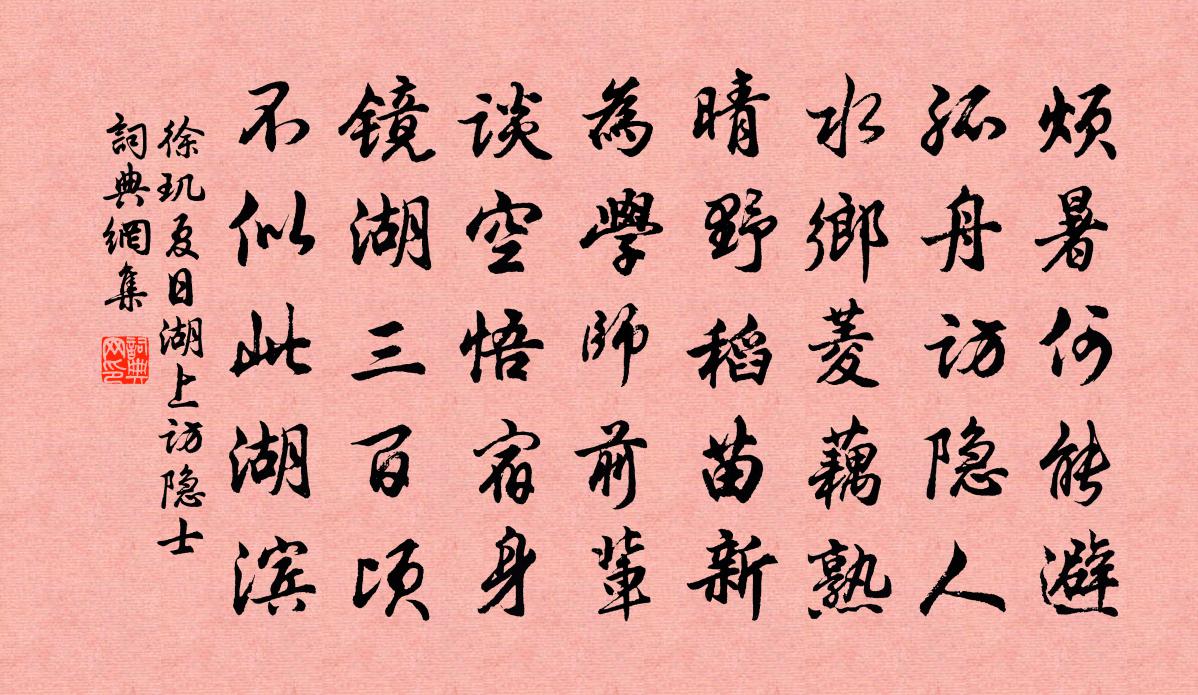 烦暑何能避
孤舟访隐人
水鄉菱藕熟
晴野稻苗新
為學師前輩
谈空悟宿身
镜湖三百顷
不似此湖滨
徐玑夏日湖上访隐士
詞典網集
詞典網印